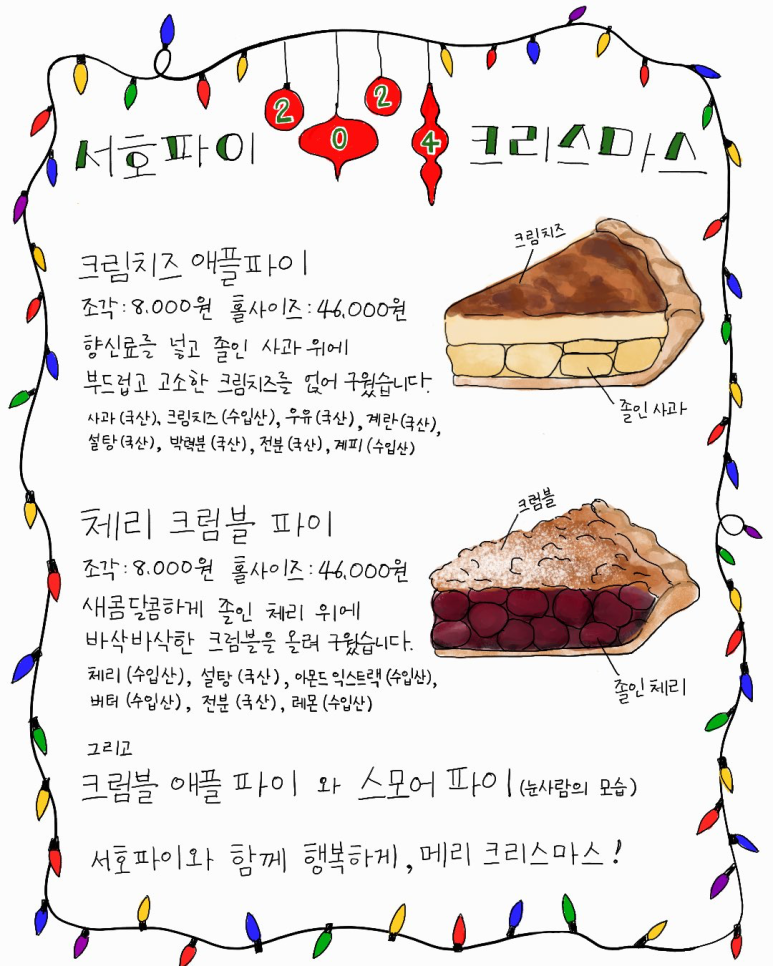 서호파이 2024 크리스마스
크림치즈 애플파이
조각:8.000원 홀사이즈:46.000원
향신료를 넣고 졸인 사과 위에
부드럽고 고소한 크림치즈를 얹어 구웠습니다.
사과(국산), 크림치즈(수입산), 우유(국산), 계란(국산),
설탕(국산), 박력분(국산), 전분(국산), 계피(수입산)
크림치즈
졸인 사과
체리 크럼블 파이
조각:8.000원 홀사이즈:46.000원
새콤달콤하게 졸인 체리 위에
바삭바삭한 크럼블을 올려 구웠습니다.
체리(수입산), 설탕(국산), 아몬드익스트랙(수입산),
버터(수입산), 전분(국산), 레몬(수입산)
크럼블
졸인 체리
그리고
크럼블 애플 파이 와 스모어 파이(눈사람의 모습)
서호파이와 함께 행복하게, 메리 크리스마스!